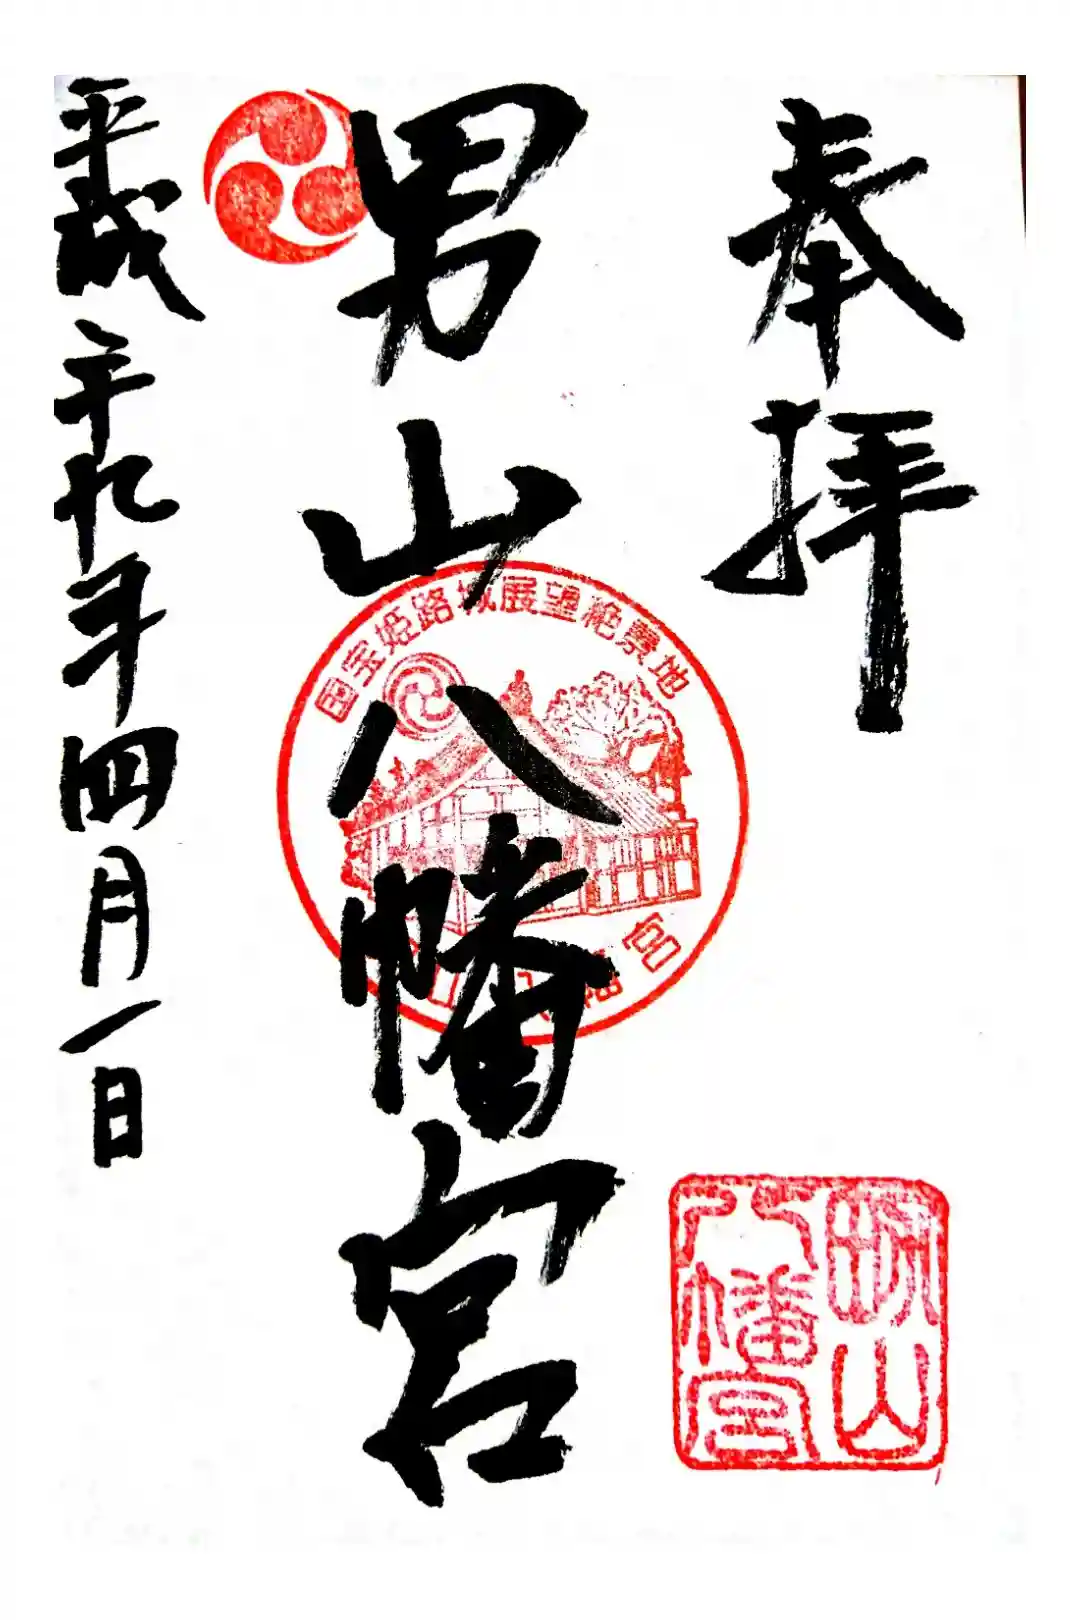 奉拝
男山八幡宮
国宝姫路城展望絶景地
幡宮
男山
八幡宮
年四月一日